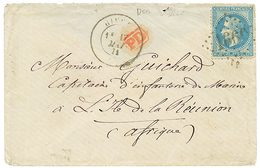 PD
Monsieur Guichard
Capitaine d'infanterie de Marine
à L'Ile de la Réunion
(Afrique)